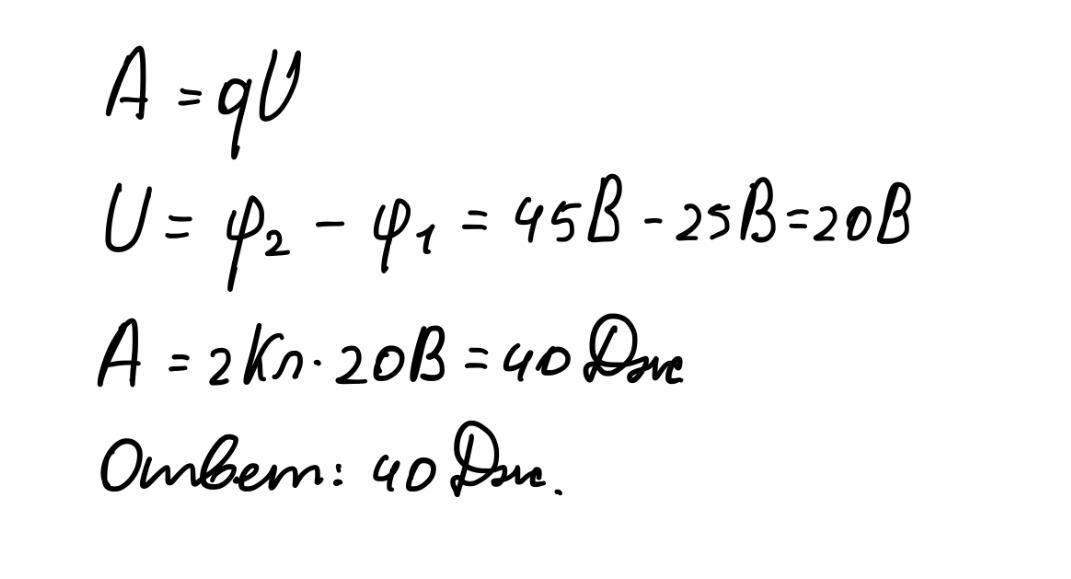 A = qU
U = φ₂ - φ₁ = 45В - 25В = 20В
A = 2Кл · 20В = 40 Дж
Ответ: 40 Дж.